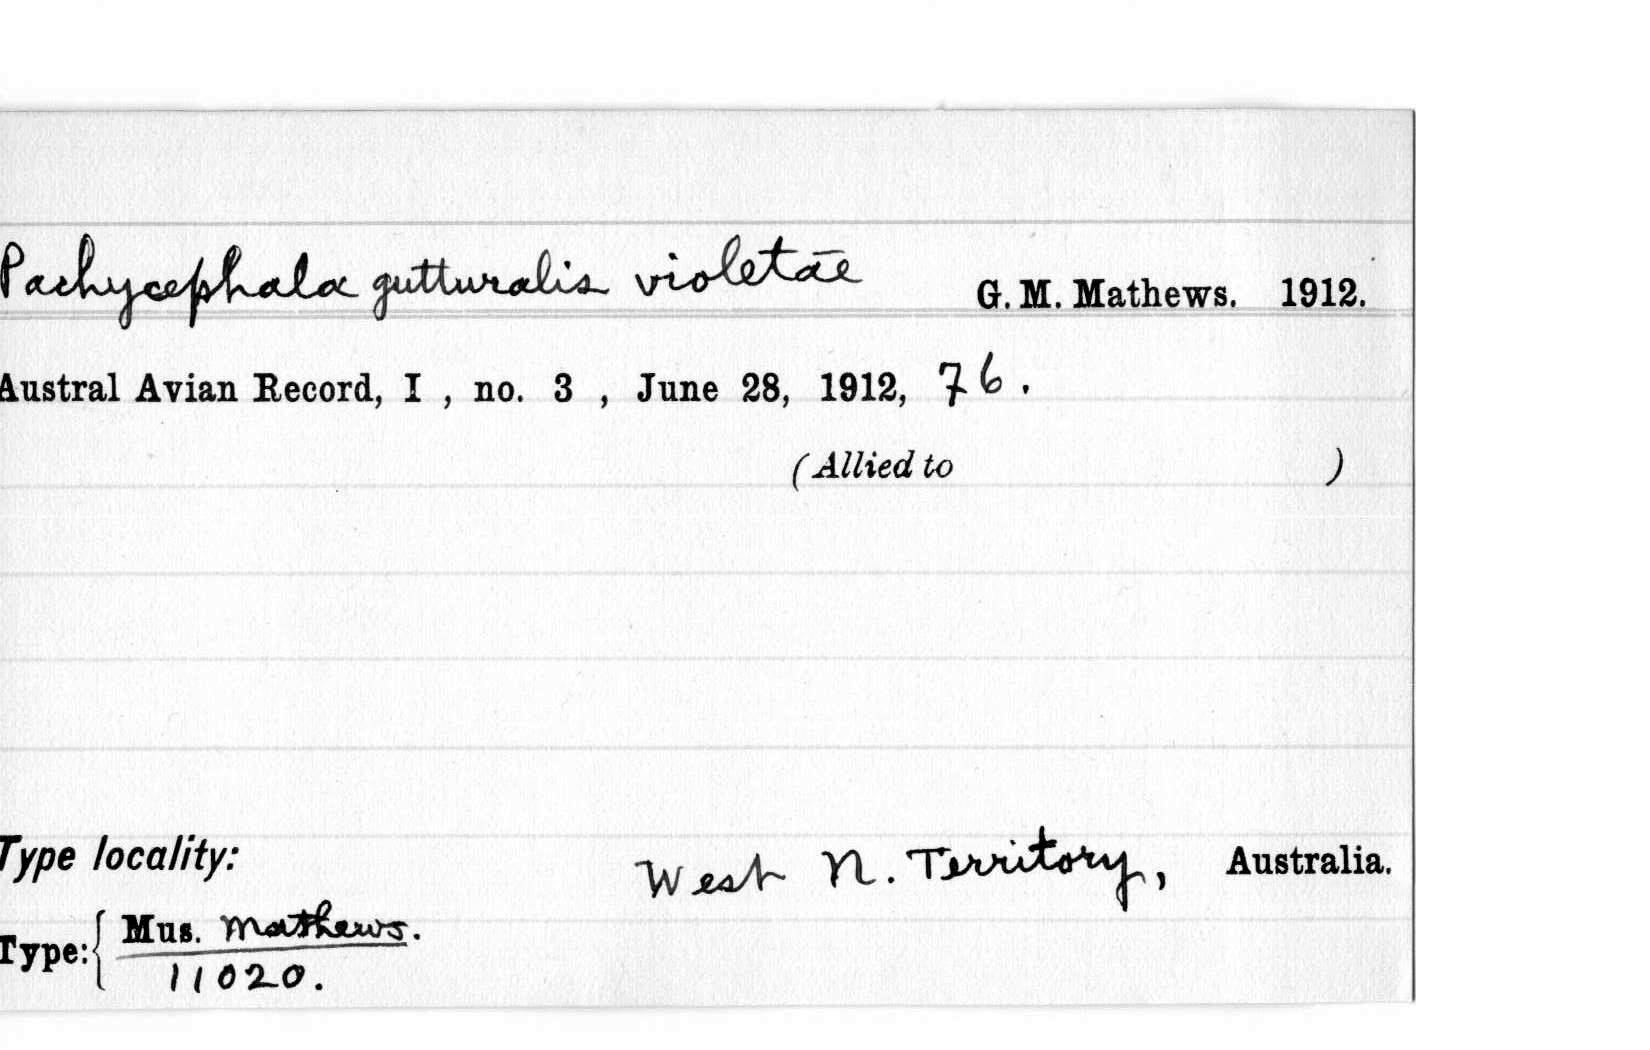 Pachycephala gutturalis violetae G. M. Mathews. 1912.
Austral Avian Record, I , no. 3 , June 28, 1912, 76.
(Allied to )
Type locality: West N. Territory, Australia.
Type: { Mus. Mathews.
11020.